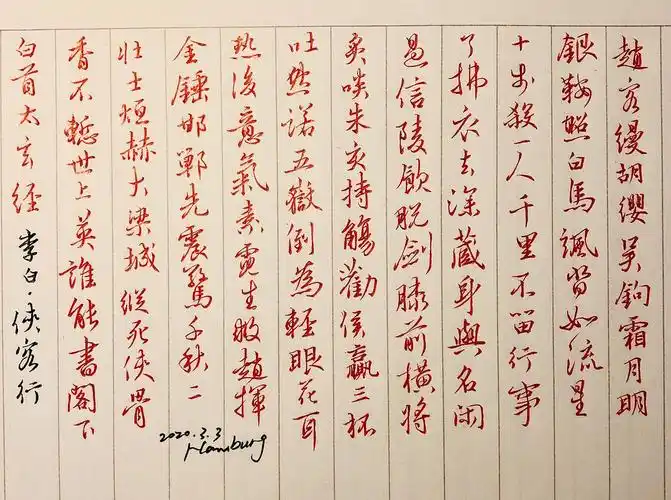 趙客縵胡纓吳鉤霜月明
銀鞍照白馬颯沓如流星
十步殺一人千里不留行事
了拂衣去深藏身與名閑
過信陵飲脫劍膝前橫將
炙啖朱亥持觴勸侯嬴三杯
吐然諾五嶽倒為輕眼花耳
熱後意氣素霓生救趙揮
金錘邯鄲先震驚千秋二
壯士烜赫大梁城縱死俠骨
香不慙世上英誰能書閣下
白首太玄經 李白·俠客行
2020.3.3
Hamburg